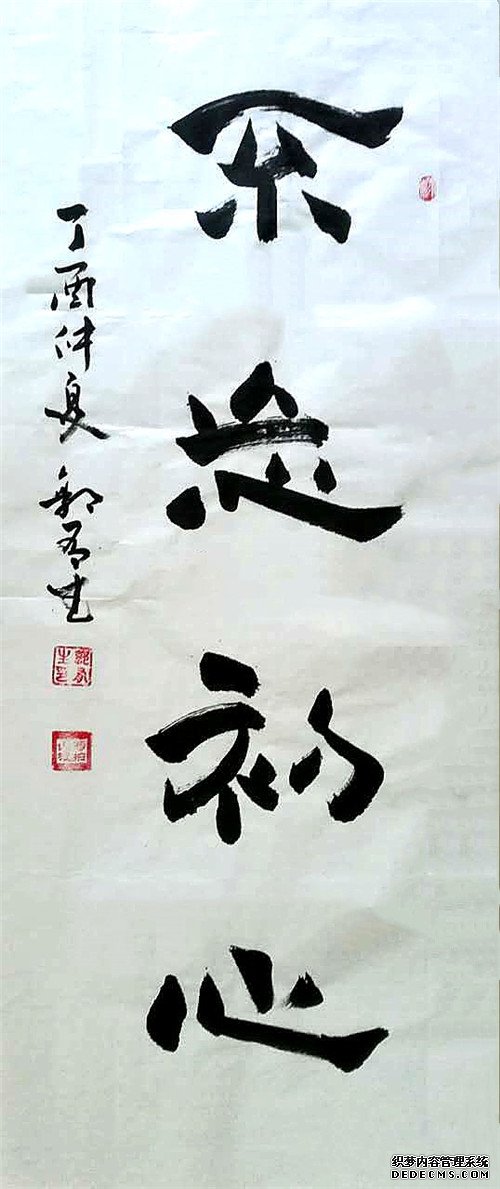 不忘初心
丁酉仲夏 郭有生
织梦内容管理系统
DEDECMS.COM